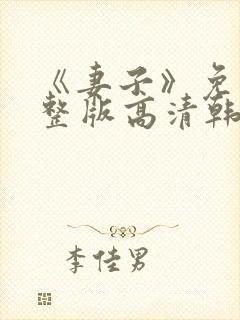 《妻子》免
整版高清韩
李佳男